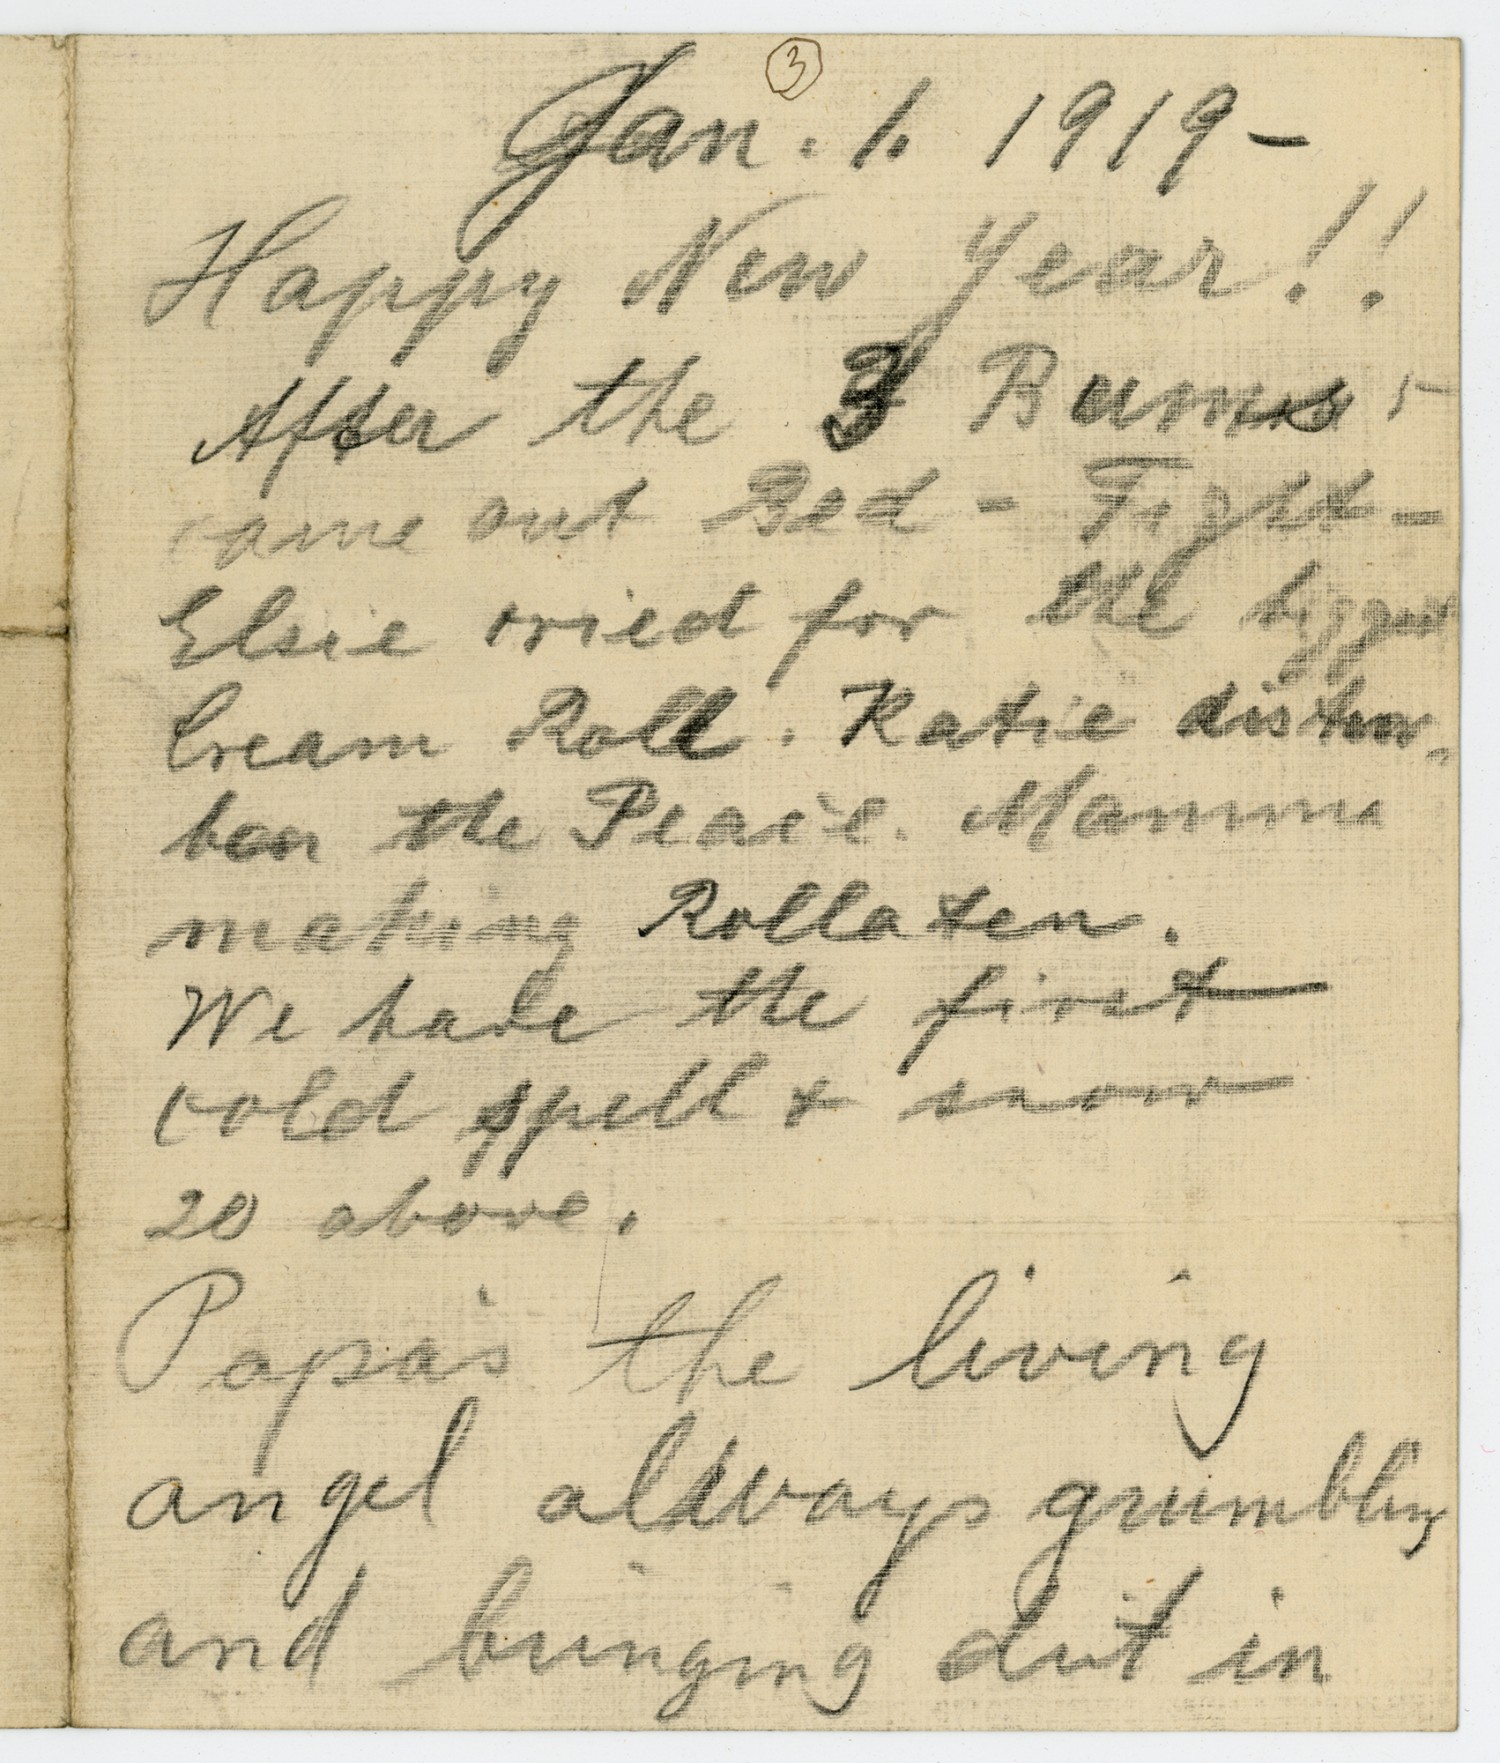 3
Jan. 1. 1919 -
Happy New Year!!
After the 3 Bums
came out Bed - Fight -
Elsie cried for the biggest
Cream Roll. Katie distur-
ber the Peace. Mamma
making Rollaten.
We have the first
cold spell & snow
20 above.
Papa's the living
angel always grumbling
and bringing dirt in